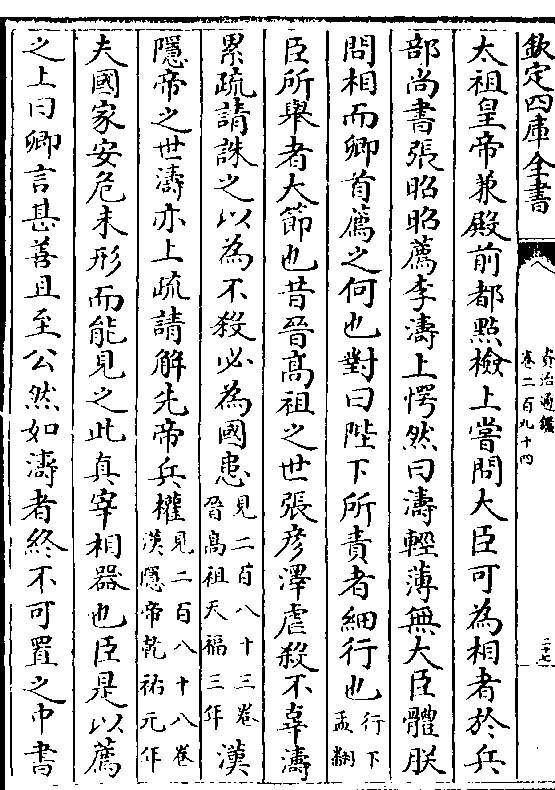 欽定四庫全書
資治通鑑
卷二百九十四
二十七
太祖皇帝兼殿前都點檢上嘗問大臣可為相者於兵
部尚書張昭昭薦李濤上愕然曰濤輕薄無大臣體朕
問相而卿首薦之何也對曰陛下所責者細行也行下孟翻
臣所舉者大節也昔晉高祖之世張彥澤虐殺不辜濤
累疏請誅之以為不殺必為國患見二百八十三卷晉高祖天福三年漢
隱帝之世濤亦上疏請解先帝兵權見二百八十八卷漢隱帝乾祐元年
夫國家安危未形而能見之此真宰相器也臣是以薦
之上曰卿言甚善且至公然如濤者終不可置之中書